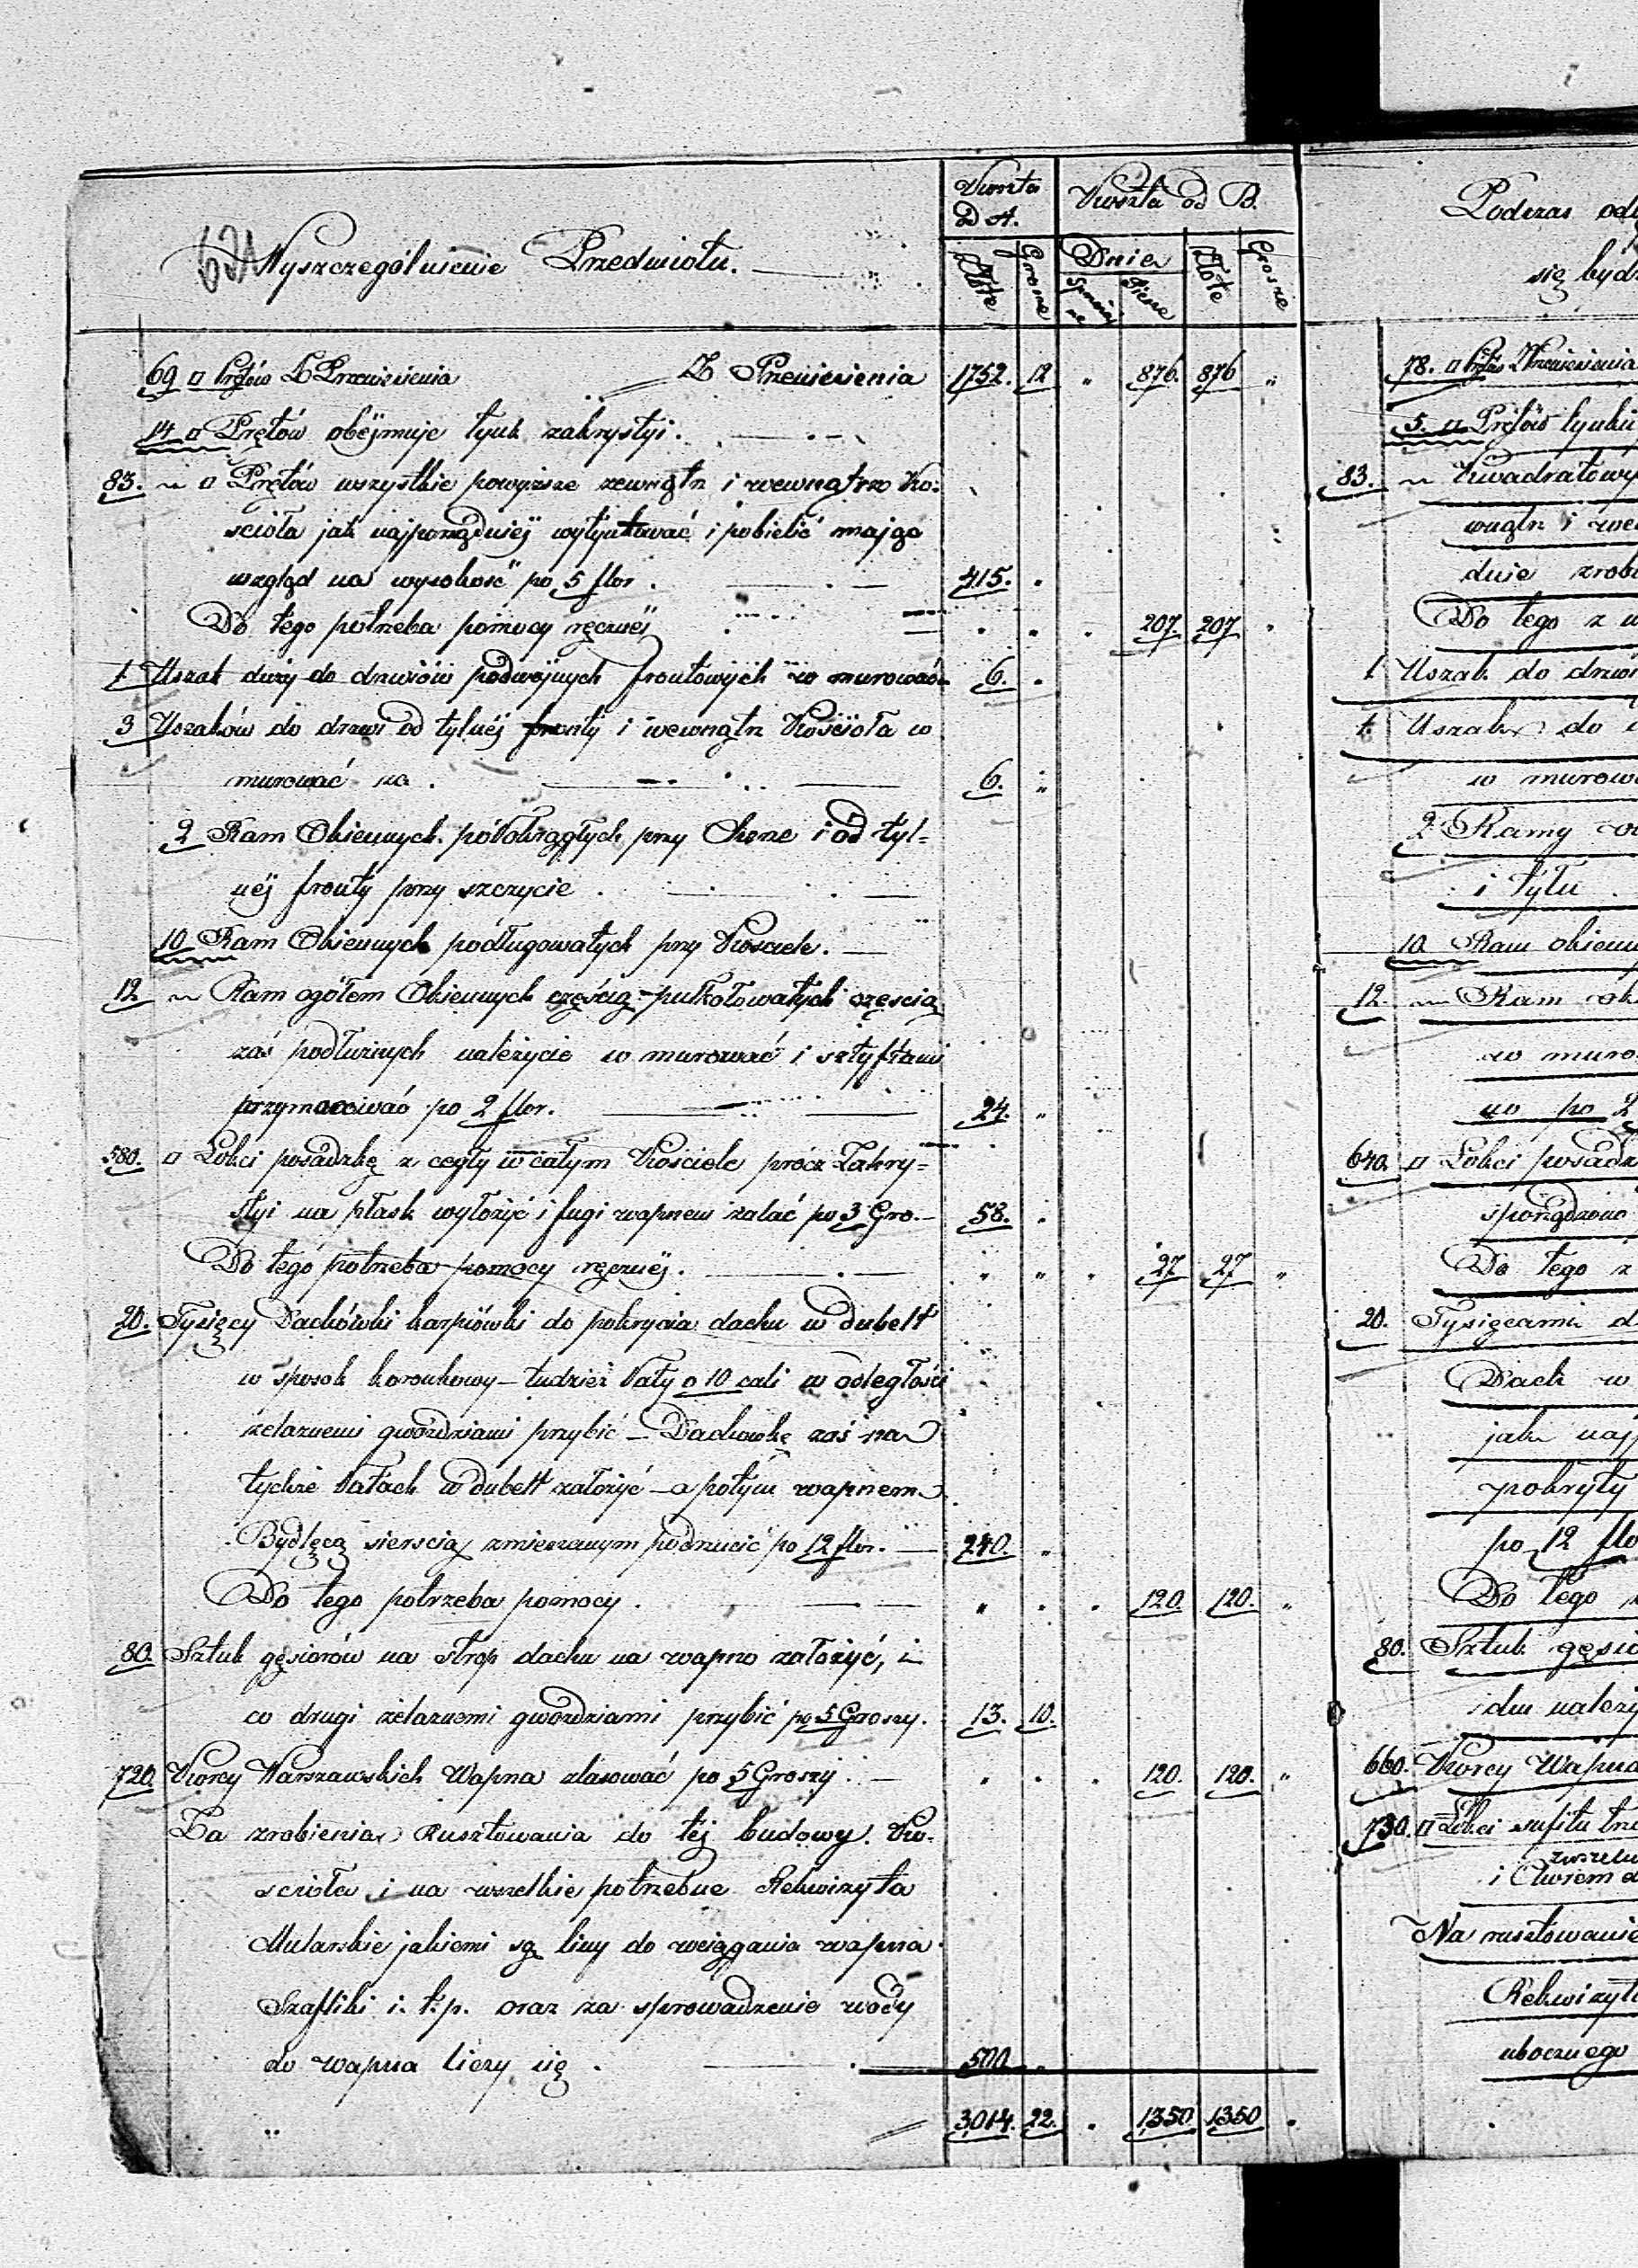 Kwota D A. Kwota od B.
Wyszczególnienie Przedmiotu. Złote Grosze Dnie Piesze Złote Grosze
69 □ Prętów Z Przeniesienia Z Przeniesienia 1752. 12 " 876. 876 "
14 □ Prętów obéjmuje tynk zakrystyi.
83. ~ □ Prętów wszystkie powyższe zewnątrz i wewnątrz Ko-
scioła jak najporządniej wytynkować i pobielić mając
wzgląd na wysokość po 5 flor. 415. "
Do tego potrzeba pomocy ręcznéj " " " 207. 207 "
1. Uszak duży do drzwiów podwójnych frontowych w murować 6. "
3 Uszaków do drzwi od tylnéj fronty i wewnątrz Kościoła w
murować za. 6. "
2 Ram Okiennych półokrągłych przy Chorze i od tyl-
néj fronty przy szczycie.
10 Ram Okiennych podługowatych przy Kosciele.
12 ~ Ram ogółem Okiennych częścią pułkołowatych częscią
zaś podłużnych należycie w murować i sztyftami
przymacować po 2 flor. 24. "
580. □ Łokci posadzkę z cegły w całym Kościele prócz Zakry-
styi na płask wyłożyć i fugi wapnem zalać po 3 Gro. 58. "
Do tego potrzeba pomocy ręcznéj. " " " 27 27 "
20. Tysięcy Dachówki karpiówki do pokrycia dachu w dubelt
w sposob koronkowy – tudzież łaty o 10 cali w odległości
żelaznemi gwoździami przybić – Dachowkę zaś na
tychże łatach w dubelt założyć – a potym wapnem
Bydlęcą sierscią zmieszanym podrzucić po 12 flor. 240. "
Do tego potrzeba pomocy. " " " 120. 120. "
80. Sztuk gęsiorów na strop dachu na wapno założyć, i
co drugi żelaznemi gwoździami przybić po 5 Groszy. 13. 10.
720. Korcy Warszawskich Wapna zlasować po 5 Groszy. " " " 120. 120. "
Za zrobienia Rusztowania do téj budowy Ko-
scioła i na wszelkie potrzebne Rekwizyta
Mularskie jakiemi są liny do wciągania wapna
Szafliki i. t. p. oraz za sprowadzenie wody
do wapna liczy się. 500 "
3014. 22. " 1350 1350 "
Podczas
się
78. □ Prętów Z Przeniesienia
5. □ Prętów tynku
83. ~ Kwadratowy
wnątrz i
Do tego z
1. Uszak do
1. Uszak do
w
2. Ramy
i tyłu
10. Ram
12. ~ Ram
w
po 2
640. □ Łokci
Do tego z
20. Tysigcami
Dach w
jak
pokryty
po 12
Do tego
80. Sztuk
660. Korcy Wapna
730. □ Łokci sufitu
i
Na rusztowanie
ubocznego